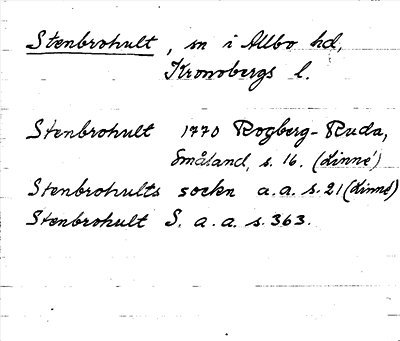 Stenbrohult, sn i Allbo hd,
Kronobergs l.
Stenbrohult 1770 Rogberg-Ruda,
Småland, s. 16. (Linné)
Stenbrohults sockn a.a. s. 21 (Linné)
Stenbrohult S. a. a. s. 363.